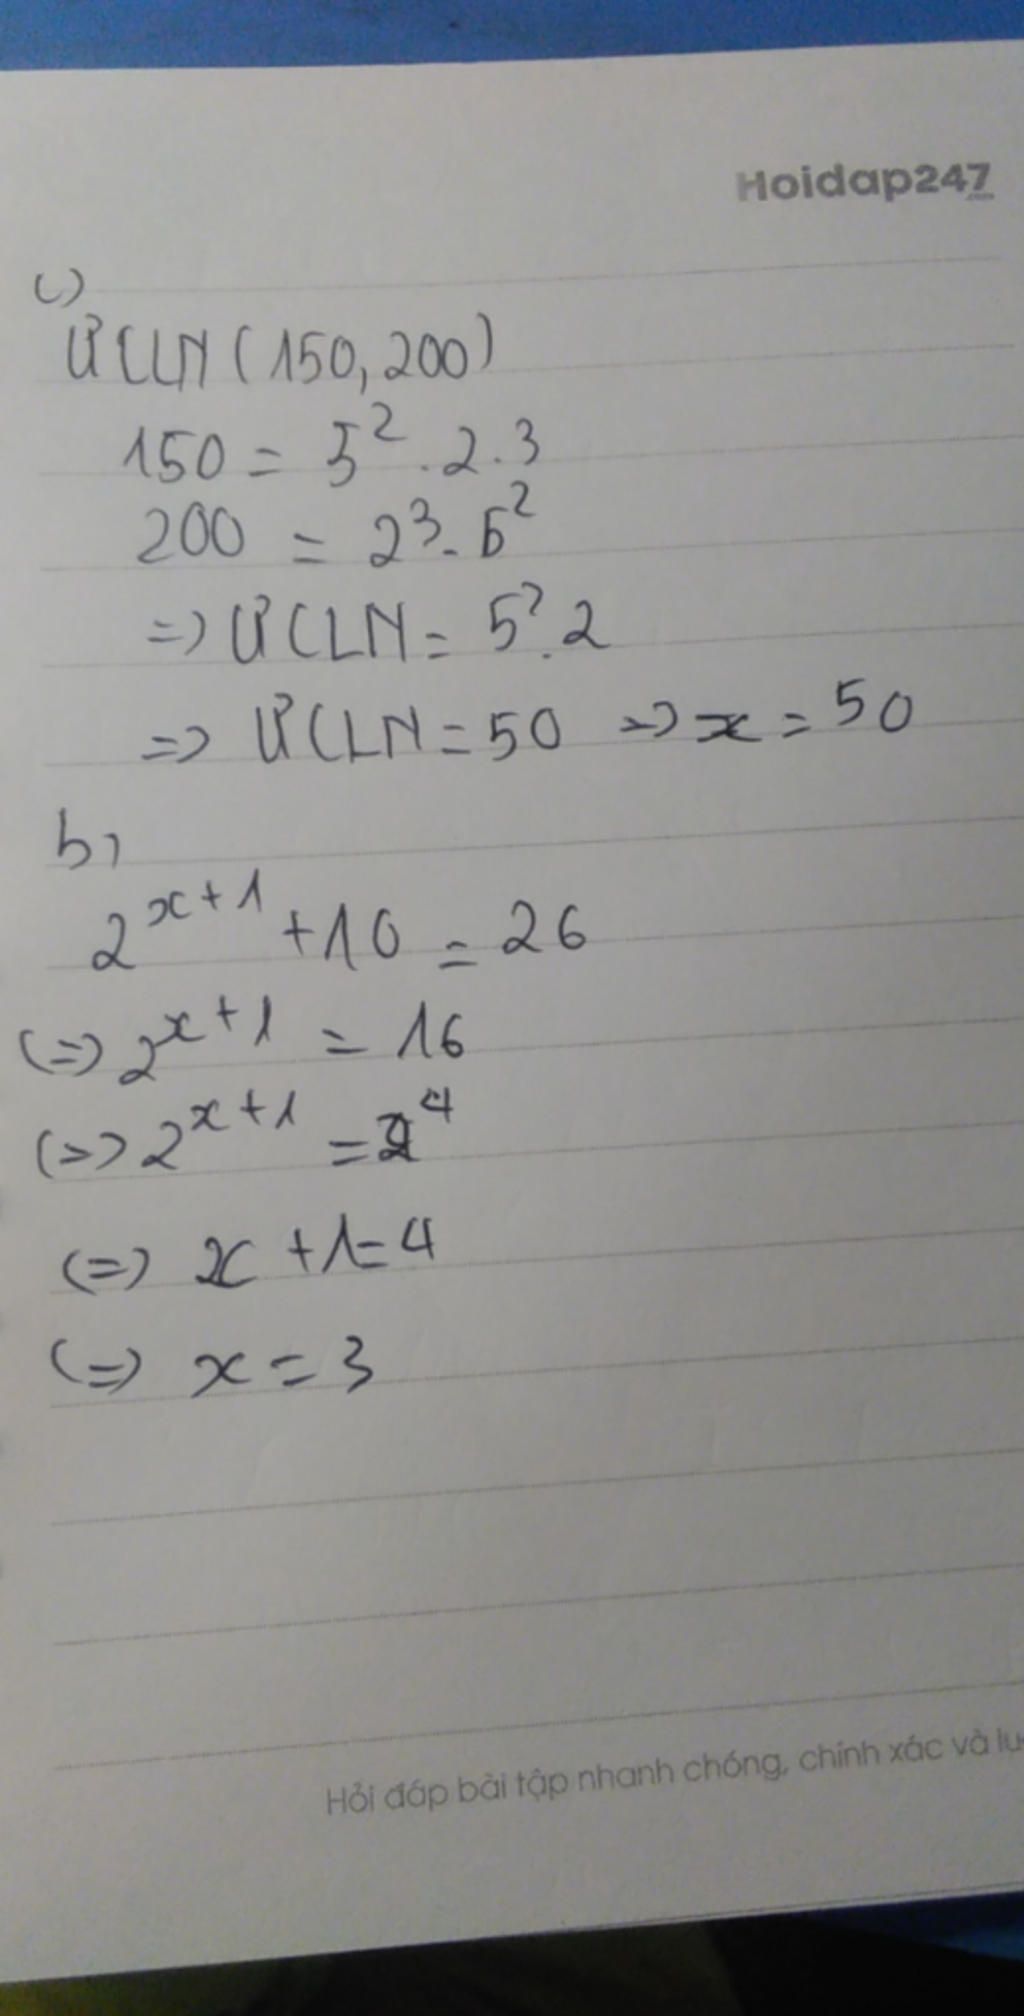 Hoidap247
c)
ƯCLN (150, 200)
150 = 5² . 2 . 3
200 = 2³ . 5²
=> ƯCLN = 5² . 2
=> ƯCLN = 50 => x = 50
b)
2^x+1 + 10 = 26
(=) 2^x+1 = 16
(=> 2^x+1 = 2⁴
(=) x + 1 = 4
(=) x = 3
Hỏi đáp bài tập nhanh chóng, chính xác và lu